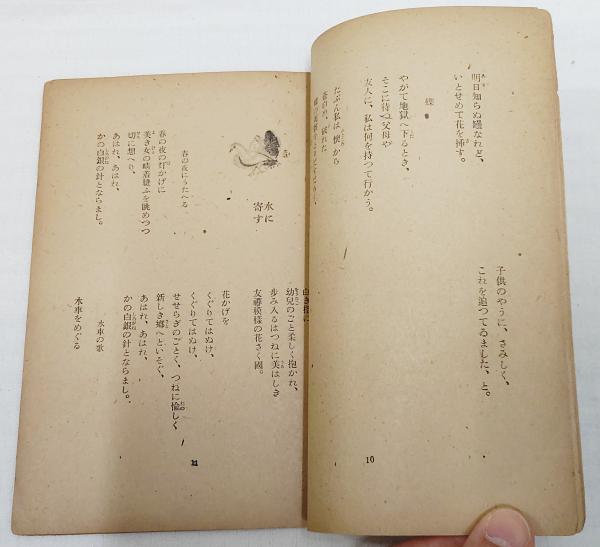 明日知らぬ軀なれど、
いとせめて花を挿す。
蝶
やがて地獄へ下るとき、
そこに待つ父母や
友人に、私は何を持つて行かう。
たぶん私は懷から
蒼白め、破れた
子供のやうに、さみしく、
これを追つてゐました、と。
10
水に
寄す
春の夜にうたへる
春の夜の灯かげに
美き女の晴着縫ふを眺めつつ
切に想へり、
あはれ、あはれ、
かの白銀の針とならまし。
白き指に
幼兒のごと柔しく抱かれ、
歩み入るはつねに美はしき
友禪模樣の花さく國。
花かげを
くぐりてはぬけ、
くぐりてはぬけ、
せせらぎのごとく、つねに愉しく
新しき鄕へといそぐ、
あはれ、あはれ、
かの白銀の針とならまし。
水車の歌
水車をめぐる
11